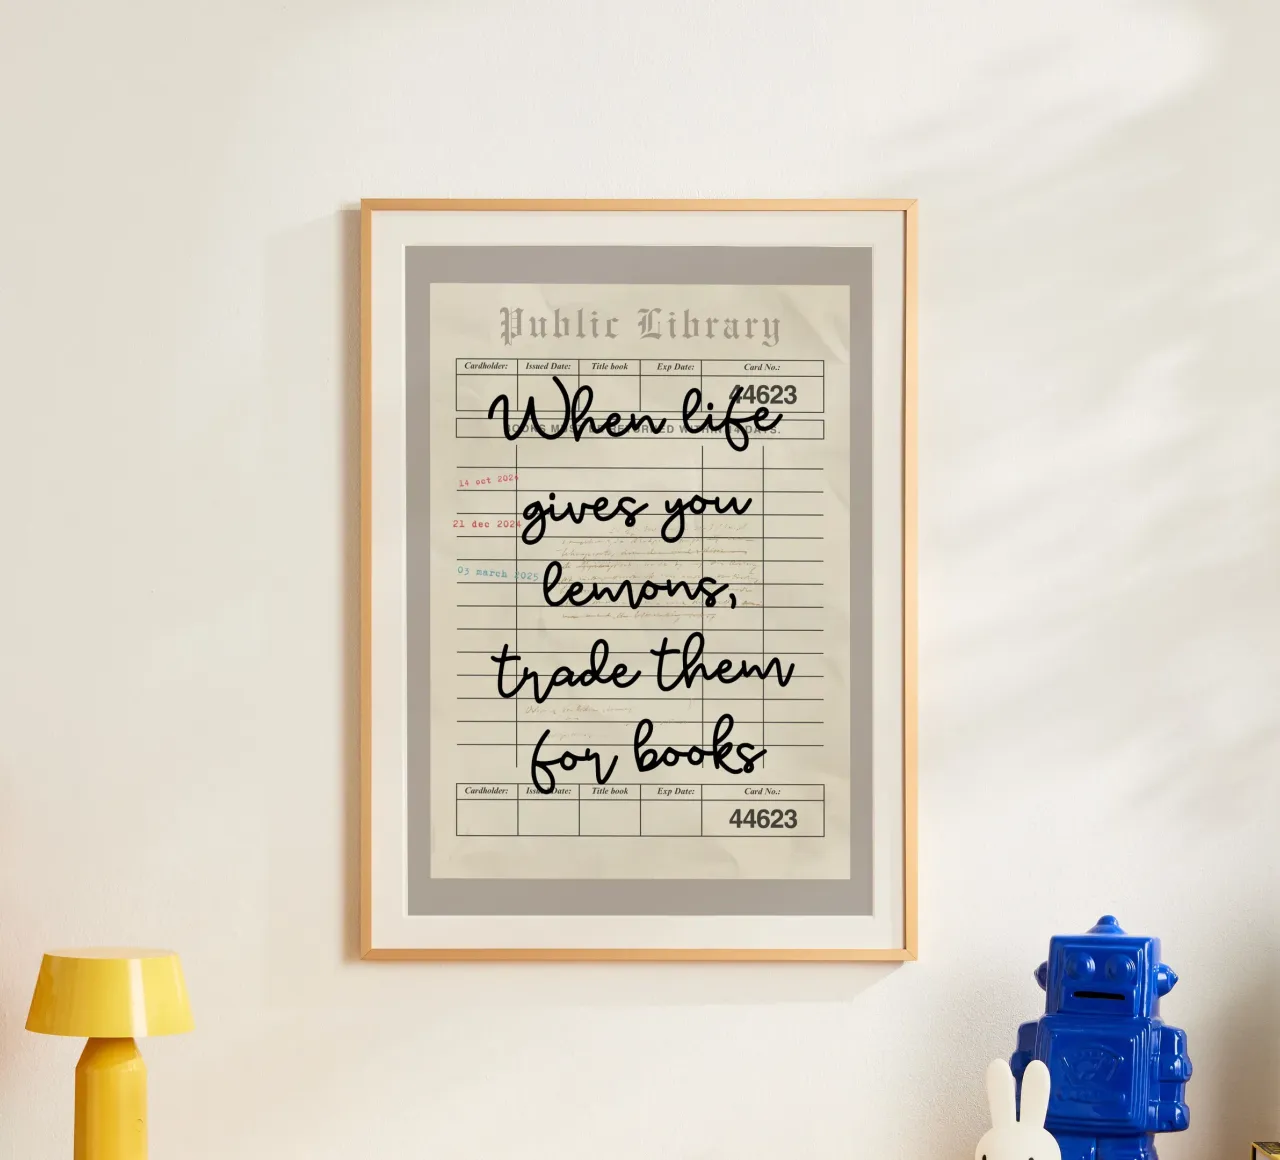 Public Library
Cardholder: Issued Date: Title book Exp Date: Card No.:
44623
BOOKS MUST BE RETURNED WITHIN 14 DAYS.
When life
14 oct 2024
gives you
21 dec 2024
03 march 2025
lemons,
trade them
for books
Cardholder: Issued Date: Title book Exp Date: Card No.:
44623